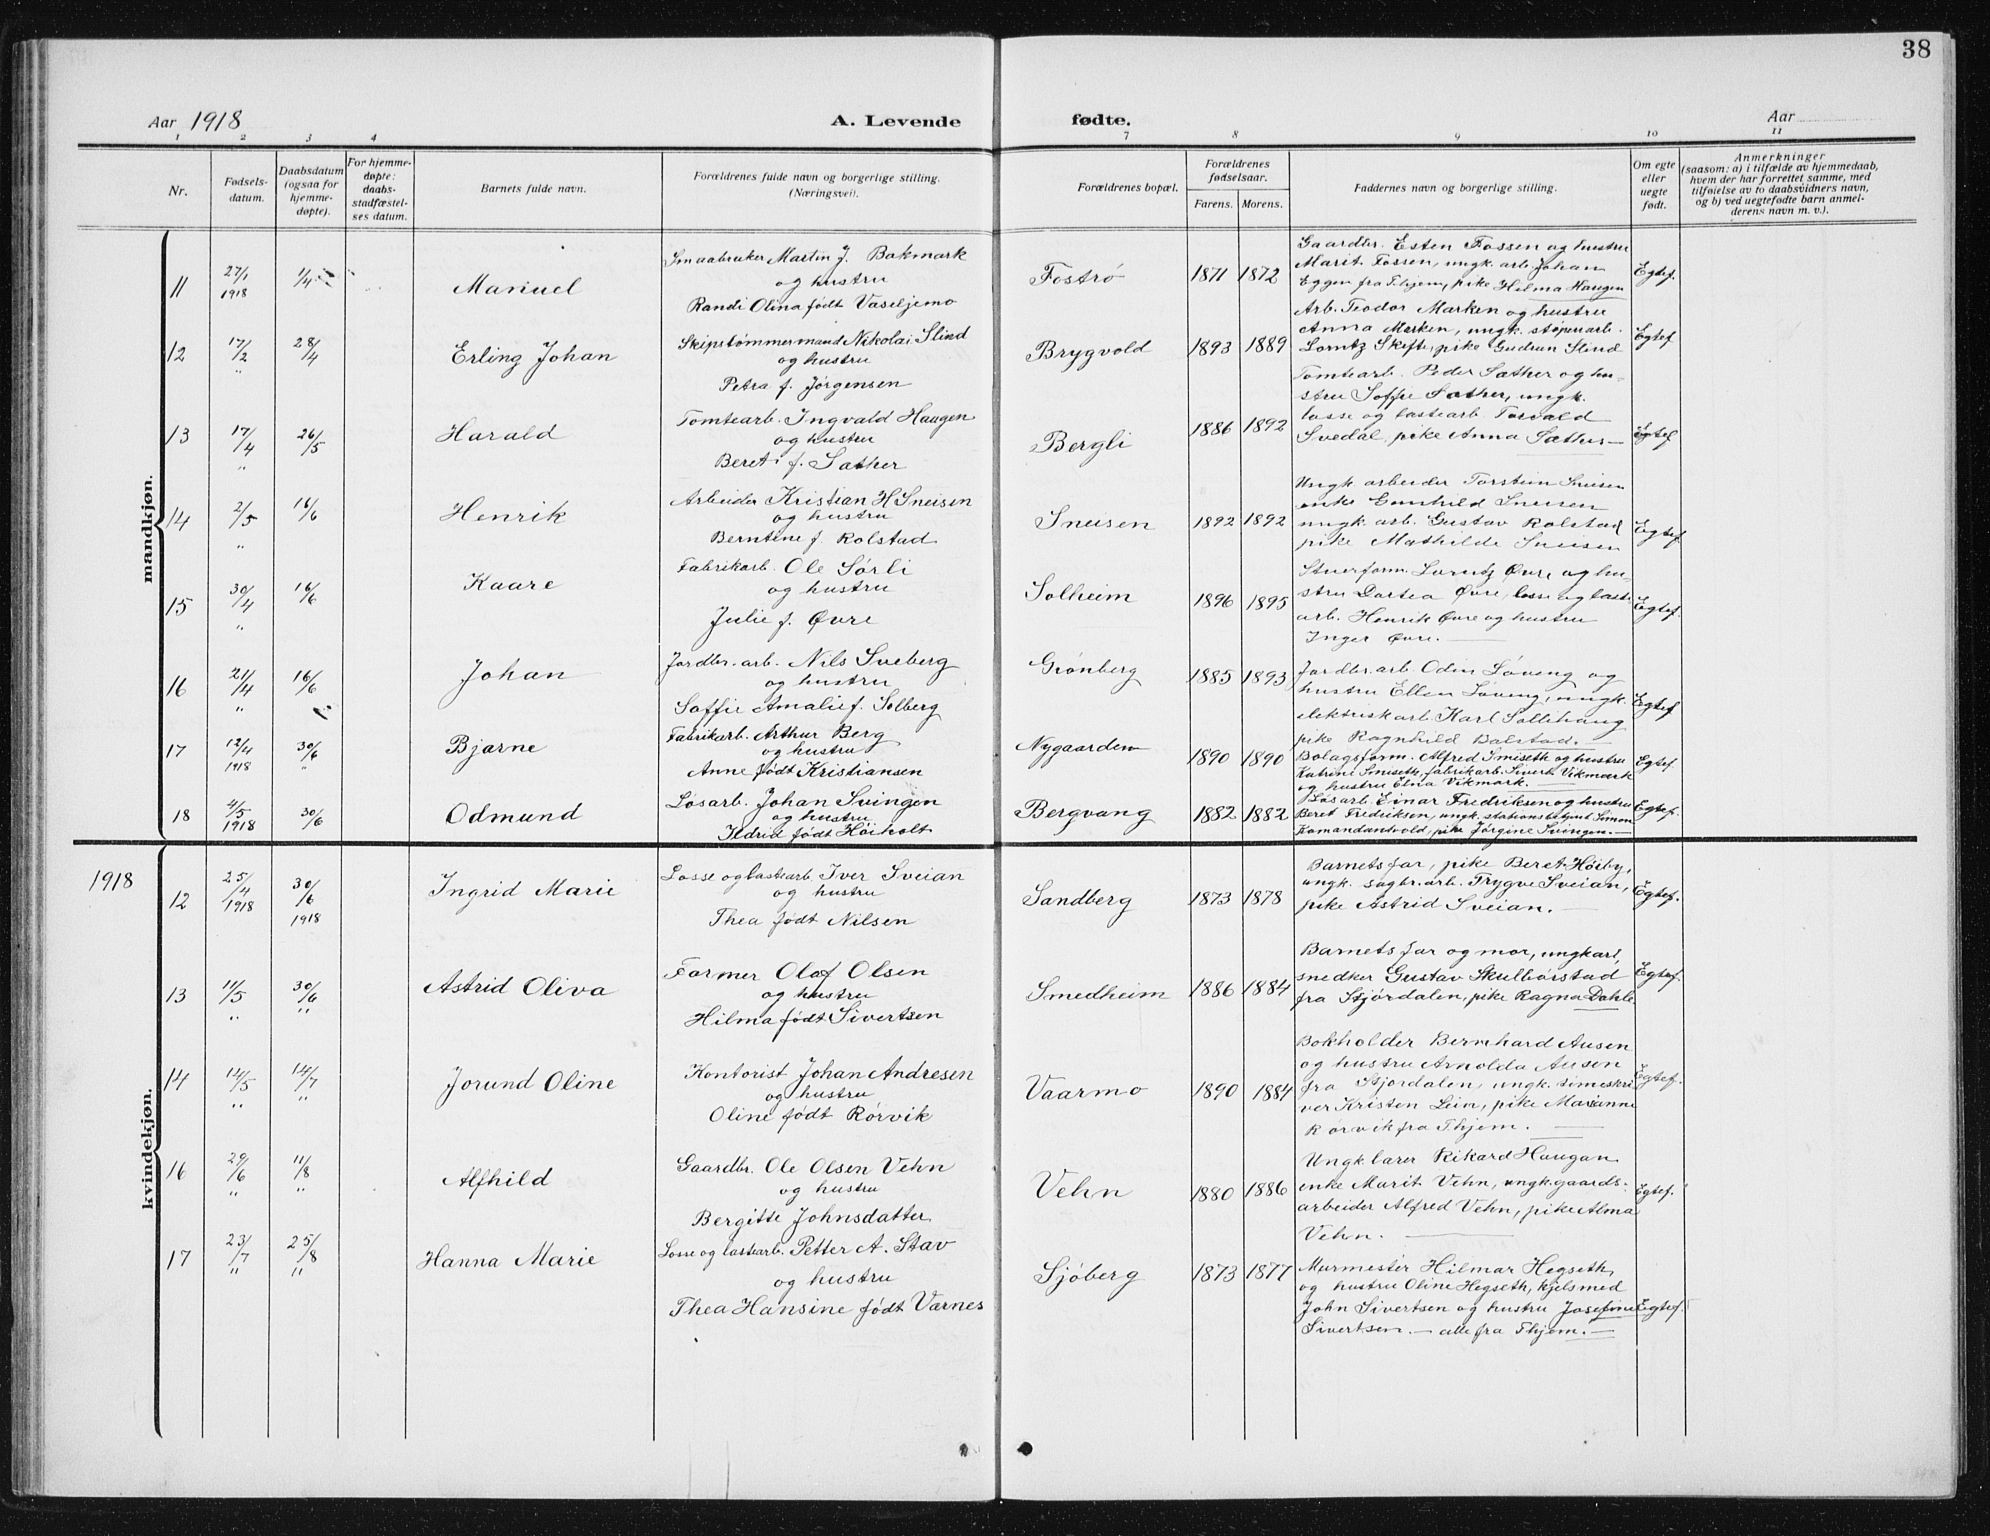 38
Aar 1918
A. Levende
fødte.
Aar
1 2 3 4 7 8 9 10 11
Nr.
Fødsels-
datum.
Daabsdatum
(ogsaa for
hjemme-
døpte).
For hjemme-
døpte:
daabs-
stadfæstel-
ses datum.
Barnets fulde navn.
Forældrenes fulde navn og borgerlige stilling.
(Næringsvei).
Forældrenes bopæl.
Forældrenes
fødselsaar.
Farens. Morens.
Faddernes navn og borgerlige stilling.
Om egte
eller
uegte
født.
Anmerkninger
(saasom: a) i tilfælde av hjemmedaab,
hvem der har forrettet samme, med
tilføielse av to daabsvidners navn,
og b) ved uegtefødte barn anmel-
derens navn m. v.).
mandkjøn.
11
27/1
1918
1/4
Manuel
Smaabruker Martin J. Bakmark
og hustru
Randi Olina født Vaseljemo
Fostrø
1871 1872
Gaardbr. Esten Fossen og hustru
Marit Fossen, ungk. arb. Johan
Eggen fra Thjem, pike Hilma Haugen
Egtef.
12
17/2
"
28/4
Erling Johan
Skipstømmermand Nikolai Slind
og hustru
Petra f. Jørgensen
Brygvold
1893 1889
Arb. Teodor Marken og hustru
Anna Marken, ungk. støperiarb.
Lorntz Skifte, pike Gudrun Slind
Egtef
13
17/4
"
26/5
Harald
Tomtearb. Ingvald Haugen
og hustru
Beret f. Sæther
Bergli
1886 1892
Tomtearb. Peder Sæther og hu-
stru Soffie Sæther, ungk.
losse og lastearb Torvald
Svedal, pike Anna Sæther —
Egtef
14
2/5
"
16/6
Henrik
Arbeider Kristian H Sneisen
og hustru
Berntine f. Rolstad
Sneisen
1892 1892
Ungk arbeider Torstein Sneisen
enke Gunhild Sneisen
ungk. arb. Gustav Rolstad
pike Mathilde Sneisen
Egtef
15
30/4
"
16/6
Kaare
Fabrikarb. Ole Sørli
og hustru
Julie f. Øvre
Solheim
1896 1895
Stuerform. Lorntz Øvre og hu-
stru Dortea Øvre, losse og last.
arb. Henrik Øvre og hustru
Inger Øvre. —
Egtef.
16
21/4
"
16/6
Johan
Jordbr. arb. Nils Sveberg
og hustru
Soffie Amalie f. Solberg
Grønberg
1885 1893
Jordbr. arb. Odin Løveng og
hustru Ellen Løveng, ungk.
elektriskarb. Karl Sollihaug
pike Ragnhild Balstad. —
Egtef
17
12/4
1918
30/6
"
Bjarne
Fabrikarb. Arthur Berg
og hustru
Anne født Kristiansen
Nygaarden
1890 1890
Bolagsform. Alfred Smiseth og hustru
Katrine Smiseth, fabrikarb. Sivert Vikmark
og hustru Elna Vikmark.
Egtef
18
4/5
1918
30/6
Odmund
Løsarb. Johan Svingen
og hustru
Ildrid født Høiholt
Bergvang
1882 1882
Løsarb. Einar Fredriksen og hustru
Beret Fredriksen, ungk. stationsbetjent Simon
Komandantvold, pike Jørgine Svingen. —
Egtef.
1918
kvindekjøn.
12
25/4
1918
30/6
1918
Ingrid Marie
Losse og lastearb Iver Sveian
og hustru
Thea født Nilsen
Sandberg
1873 1878
Barnets far, pike Beret Høiby,
ungk. sagbr. arb. Trygve Sveian,
pike Astrid Sveian. —
Egtef.
13
11/5
"
30/6
"
Astrid Oliva
Former Olaf Olsen
og hustru
Hilma født Sivertsen
Smedheim
1886 1884
Barnets far og mor, ungkarl,
snedker Gustav Skulbørstad
fra Stjørdalen, pike Ragna Dahle
Egtef.
14
14/5
"
14/7
"
Jorund Oline
Kontorist Johan Andresen
og hustru
Oline født Rørvik
Vaarmo
1890 1884
Bokholder Bernhard Ausen
og hustru Arnolda Ausen
fra Stjørdalen, ungk. timeskri
ver Kristen Lein, pike Marianne
Rørvik fra Thjem. —
Egtef.
16
29/6
"
11/8
"
Alfhild
Gaardbr. Ole Olsen Vehn
og hustru
Bergitte Johnsdatter
Vehn
1880 1886
Ungk lærer Rikard Haugan
enke Marit Vehn, ungk. gaards-
arbeider Alfred Vehn, pike Alma
Vehn. —
Egtef.
17
23/7
"
25/8
"
Hanna Marie
Losse og lastearb. Petter A. Stav
og hustru
Thea Hansine født Varnes
Sjøberg
1873 1877
Murmester Hilmar Hegseth,
og hustru Oline Hegseth, kjelsmed
John Sivertsen og hustru Josefine
Sivertsen. — alle fra Thjem. —
Egtef.